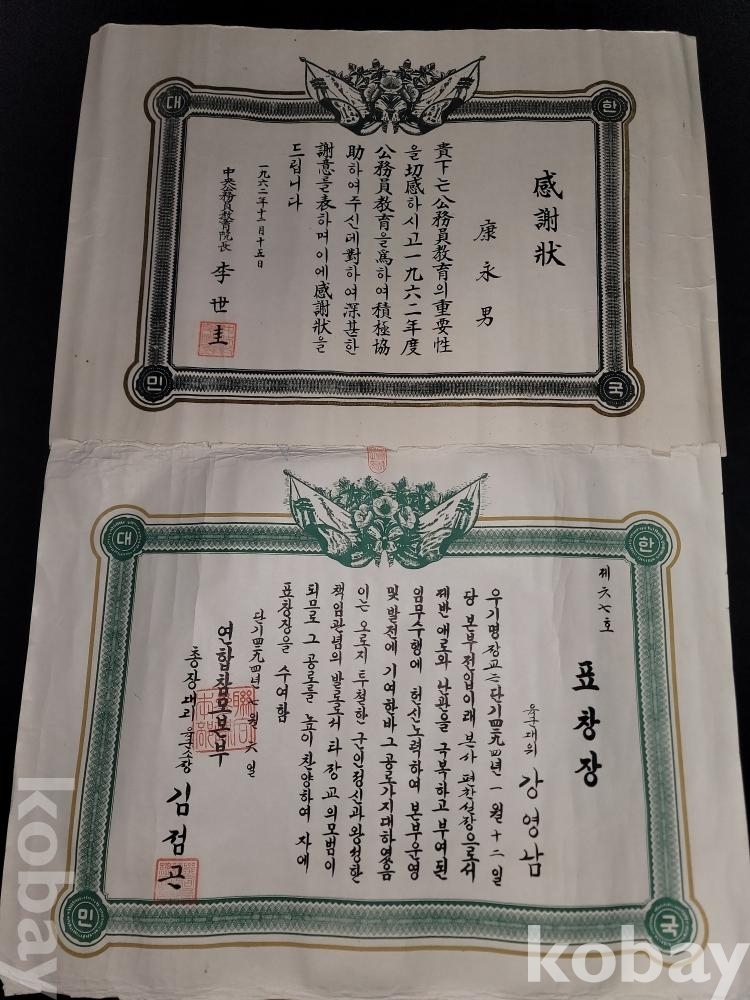 대
한
민
국
感謝狀
康永男
貴下는 公務員教育의 重要性
을 切感하시고 一九六二年度
公務員教育을 爲하여 積極協
助하여주신데 對하여 深甚한
謝意를 表하며 이에 感謝狀을
드립니다
一九六二年十二月十五日
中央公務員教育院長 李世圭
대
한
민
국
제六七호
표창장
육군대위 강영남
우기명 장교는 단기四二九四년 一월 十二일
당 본부전입이래 본사 편찬실장으로서
제반 애로와 난관을 극복하고 부여된
임무수행에 헌신노력하여 본부운영
및 발전에 기여한바 그 공로가지대하였음
이는 오로지 투철한 군인정신과 왕성한
책임관념의 발로로서 타 장교의모범이
되므로 그 공로를 높이 찬양하여 자에
표창장을 수여함
단기四二九四년 七월 六일
연합참모본부
총장대리 육군소장 김점곤
kobay
kobay